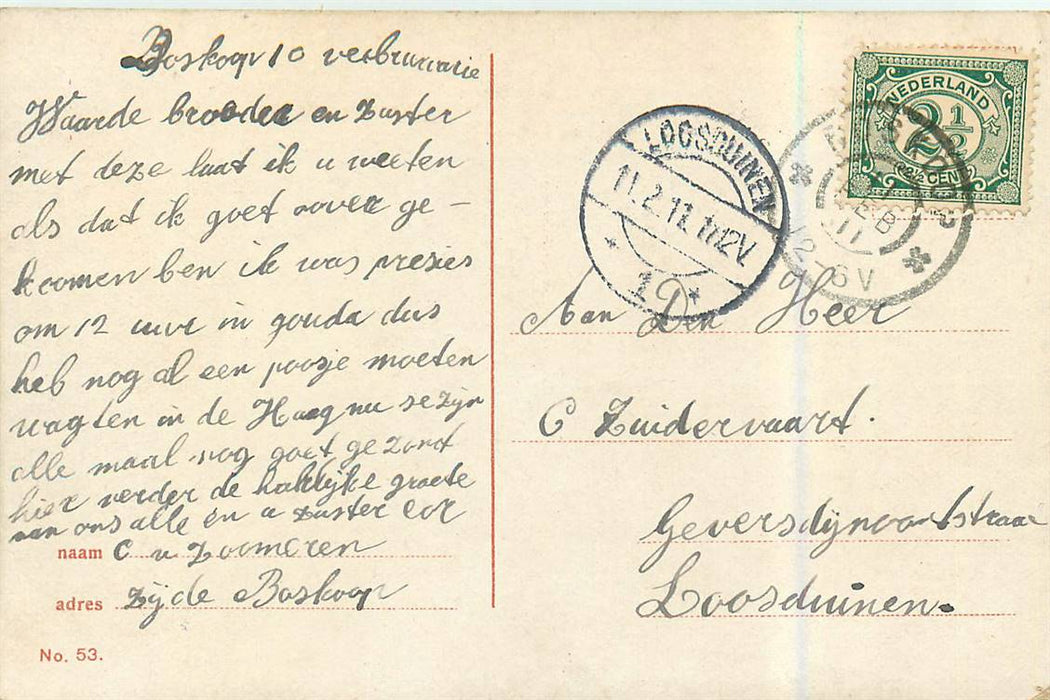 Boskoop 10 verbruwarie
Waarde broeder en Zuster
met deze laat ik u weeten
als dat ik goet oover ge-
koomen ben ik was presies
om 12 uur in gouda dus
heb nog al een poosje moeten
wagten in de Haag nu se zijn
alle maal nog goet gezont
hier verder de hartlijke groete
van ons alle en u zuster cor
naam C v Zoomeren
adres Zijde Boskoop
No. 53.
NEDERLAND
2½
(2½ CENT)
LOOSDUINEN
11.2.11.1112V.
FEB
11
12-6V
Aan Den Heer
C Zuidervaart.
Geversdijnootstraat
Loosduinen.